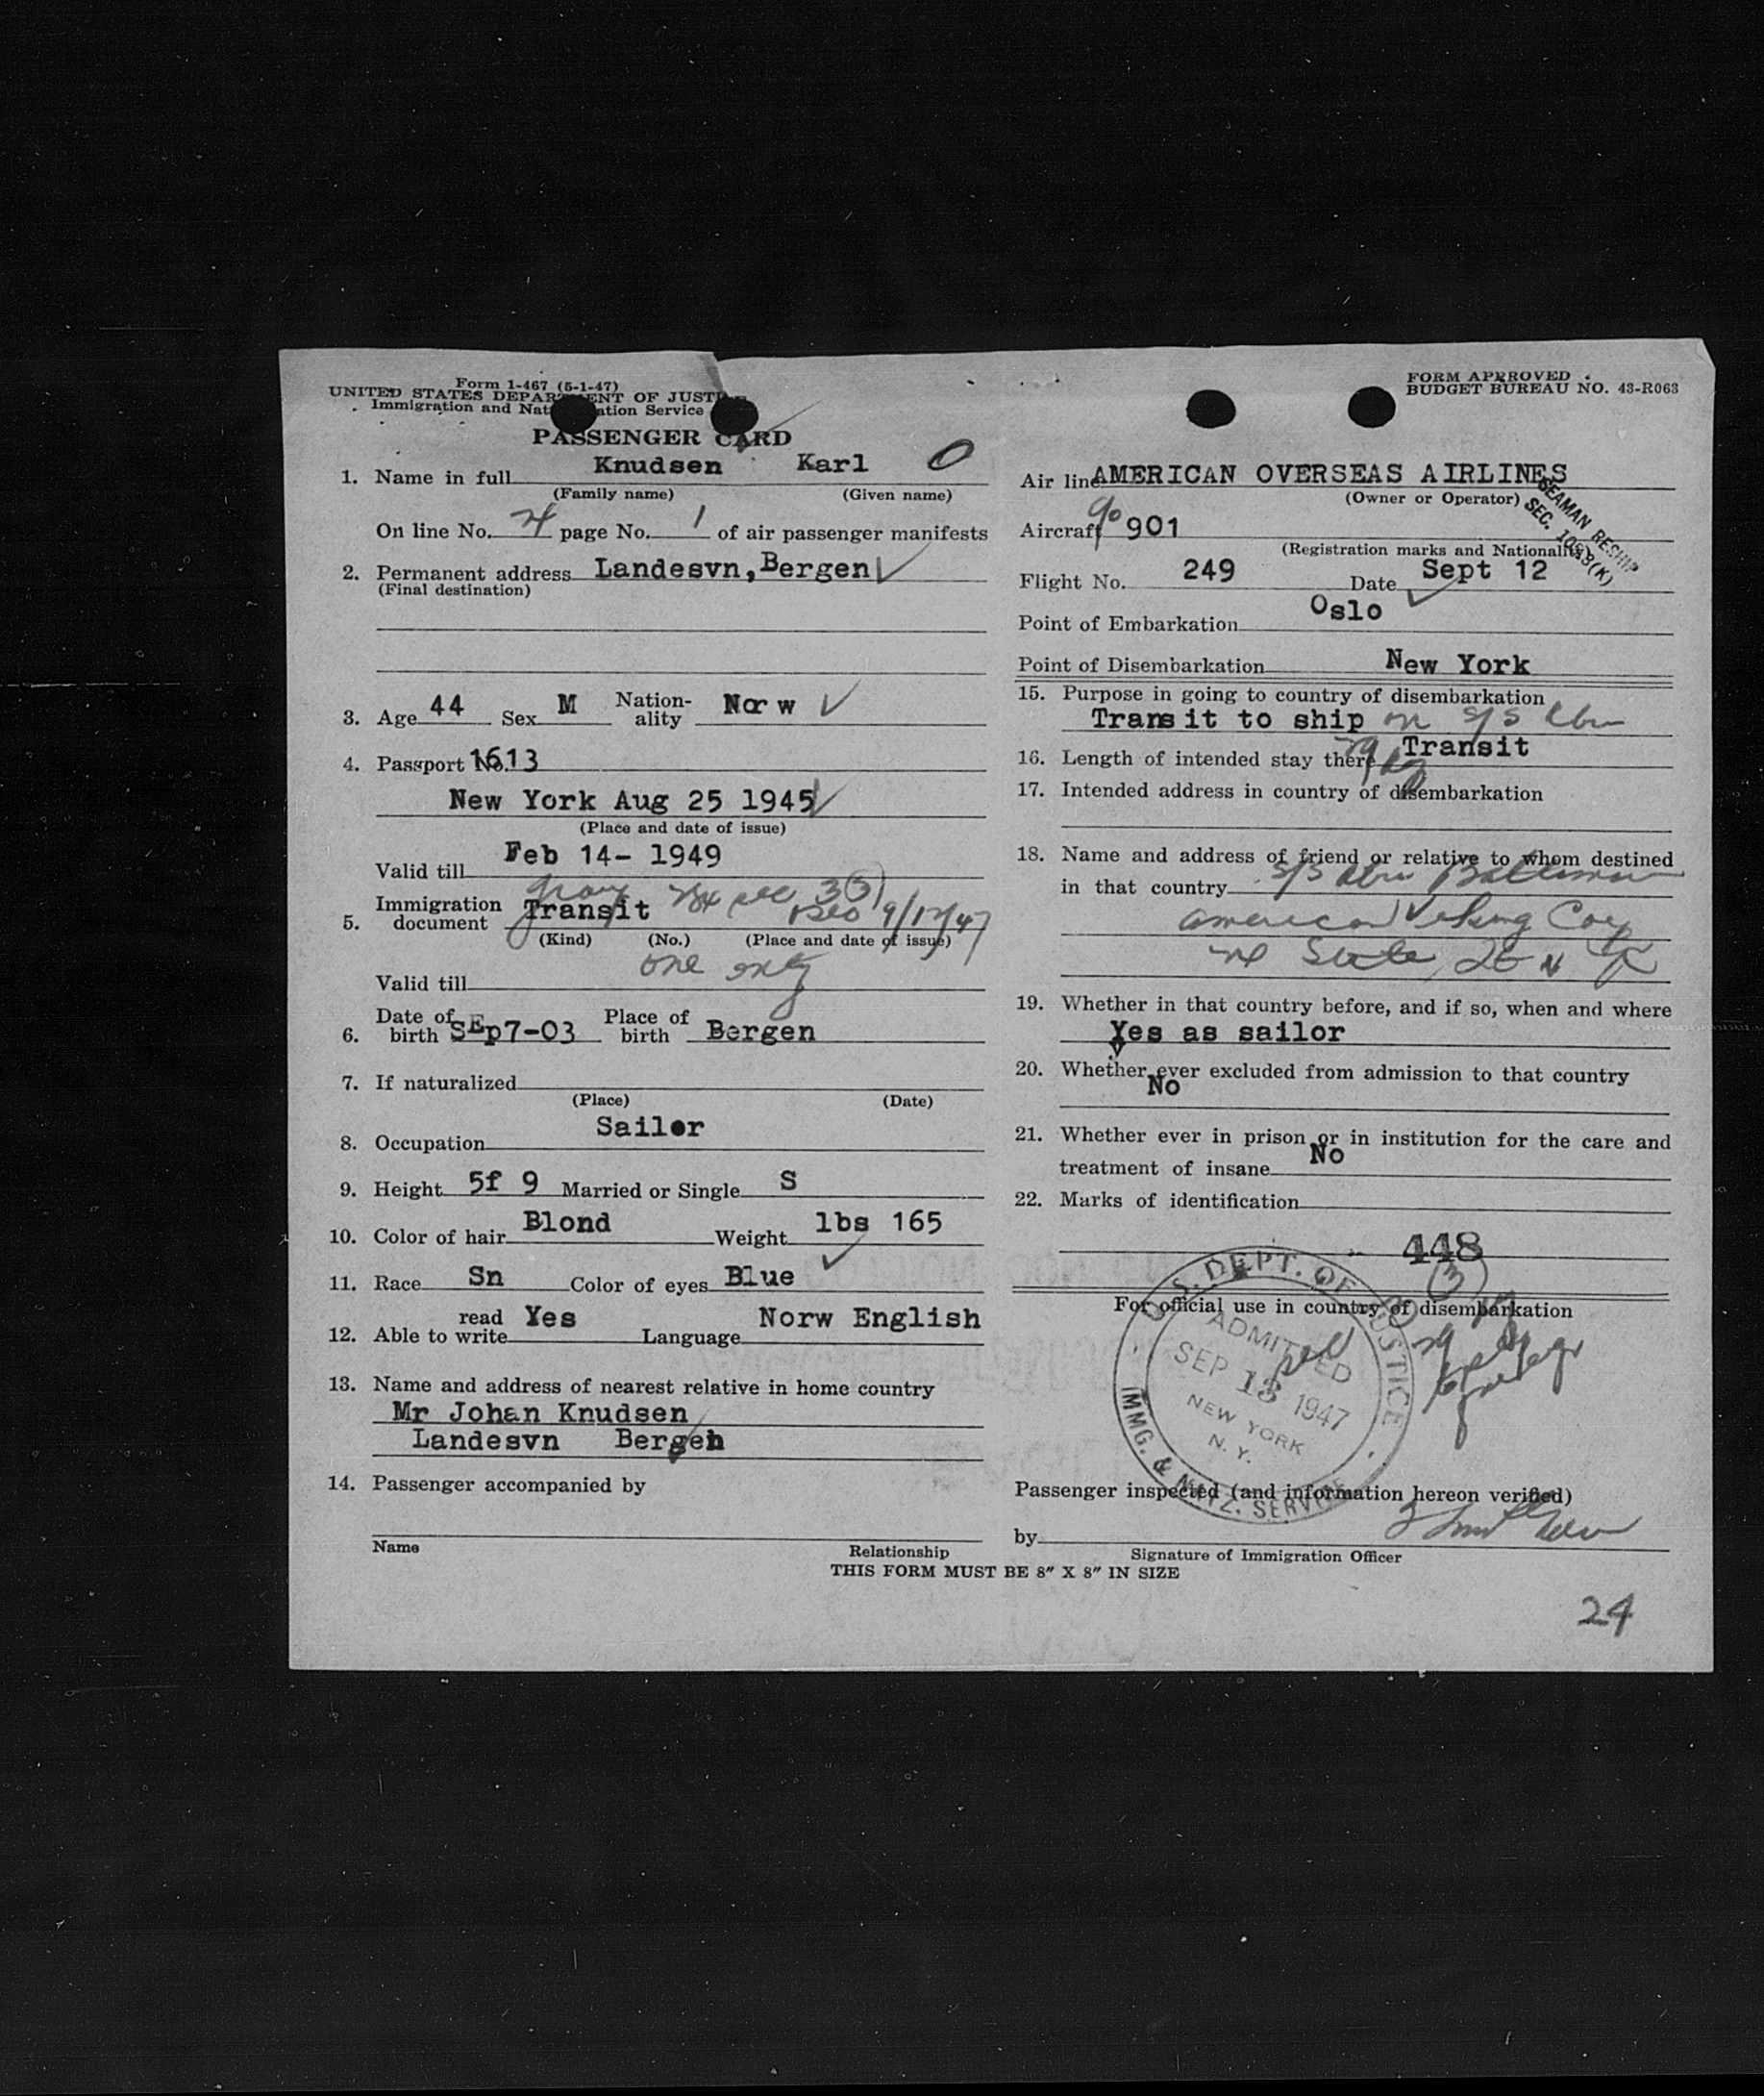 Form 1-467 (5-1-47)
UNITED STATES DEPARTMENT OF JUSTICE
Immigration and Naturalization Service
PASSENGER CARD
1. Name in full Knudsen Karl O
(Family name) (Given name)
On line No. 24 page No. 1 of air passenger manifests
2. Permanent address Landesvn, Bergen
(Final destination)
3. Age 44 Sex M Nation-ality Norw
4. Passport No. 1613
New York Aug 25 1945
(Place and date of issue)
Valid till Feb 14- 1949
5. Immigration document Transit sec 3(3) Oslo 9/12/47
(Kind) (No.) (Place and date of issue)
one entry
Valid till
6. Date of birth SEp7-03 Place of birth Bergen
7. If naturalized
(Place) (Date)
8. Occupation Sailor
9. Height 5f 9 Married or Single S
10. Color of hair Blond Weight lbs 165
11. Race Sn Color of eyes Blue
12. Able to read write Yes Language Norw English
13. Name and address of nearest relative in home country
Mr Johan Knudsen
Landesvn Bergen
14. Passenger accompanied by
Name Relationship
FORM APPROVED
BUDGET BUREAU NO. 43-R063
Air line AMERICAN OVERSEAS AIRLINES
(Owner or Operator)
SEAMAN RESHIP
SEC. 10
Aircraft 90 901
(Registration marks and Nationality)
Flight No. 249 Date Sept 12
Point of Embarkation Oslo
Point of Disembarkation New York
15. Purpose in going to country of disembarkation
Transit to ship on S/S
16. Length of intended stay there Transit
17. Intended address in country of disembarkation
18. Name and address of friend or relative to whom destined
in that country S/S Baltimore
American Viking Corp
State
19. Whether in that country before, and if so, when and where
Yes as sailor
20. Whether ever excluded from admission to that country
No
21. Whether ever in prison or in institution for the care and
treatment of insane No
22. Marks of identification
448
For official use in country of disembarkation
U.S. DEPT. OF JUSTICE
ADMITTED
SEP 13 1947
NEW YORK
N. Y.
IMMG. & NATZ. SERVICE
Passenger inspected (and information hereon verified)
by
Signature of Immigration Officer
THIS FORM MUST BE 8" X 8" IN SIZE
24